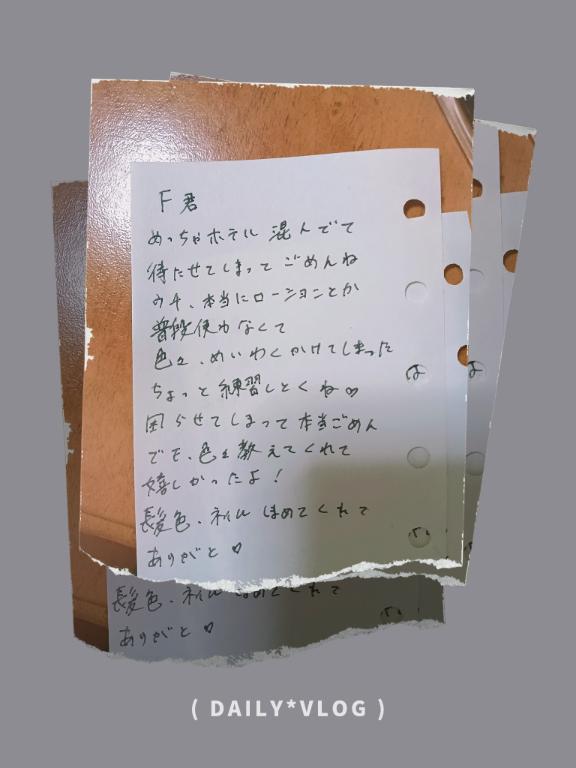 F君
めっちゃホテル 混んでて
待たせてしまって ごめんね
本当にローションとか
普段使わなくて
色々、めいわくかけてしまった
ちょっと練習しとくね♡
困らせてしまって本当ごめん
でも、色々教えてくれて
嬉しかったよ！
髪色、ネイル ほめてくれて
ありがと♡
髪色、ネイル ほめてくれて
ありがと♡
( DAILY*VLOG )